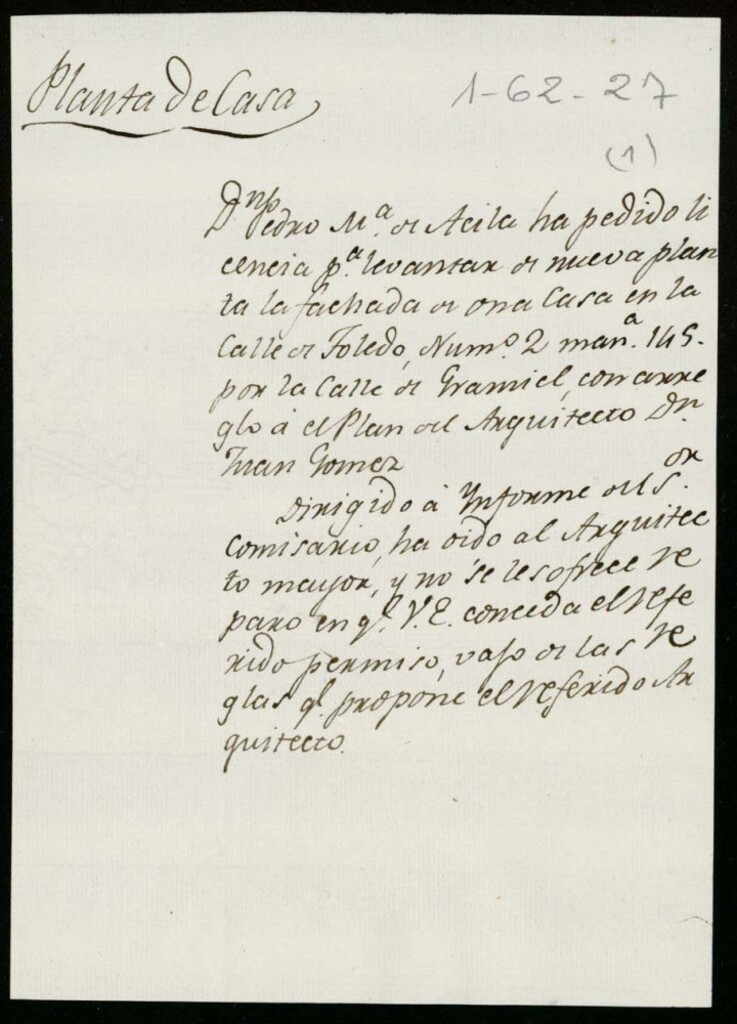 Planta de Casa
1-62-27
(1)
Dn. Pedro Ma. de Acila ha pedido li
cencia pa. levantar de nueva plan
ta la fachada de ona Casa en la
Calle de Toledo, Numo. 2 mana. 145.
por la Calle de Gramiel, con arre
glo à el Plan del Arquitecto Dn.
Juan Gomez
Dirigido à Informe del Sor.
Comisario, ha oido al Arquitec
to mayor, y no se les ofrece re
paro en qe. V.E. conceda el refe
rido permiso, vajo de las re
glas qe. propone el referido Ar
quitecto.